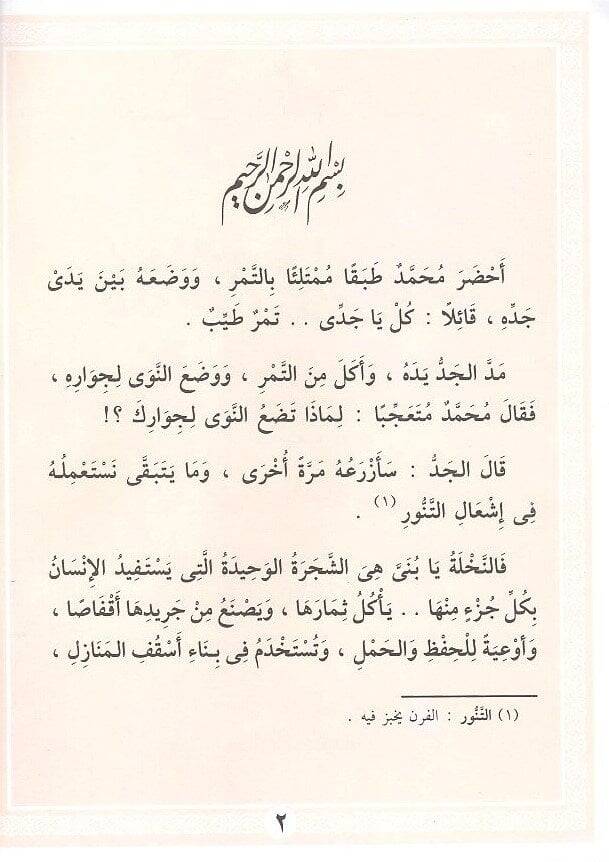 بِسْمِ اللهِ الرَّحْمٰنِ الرَّحِيمِ
أَحْضَرَ مُحَمَّدٌ طَبَقًا مُمْتَلِئًا بِالتَّمْرِ ، وَوَضَعَهُ بَيْنَ يَدَىْ
جَدِّهِ ، قَائِلًا : كُلْ يَا جَدِّى . . تَمْرٌ طَيِّبٌ .
مَدَّ الجَدُّ يَدَهُ ، وَأَكَلَ مِنَ التَّمْرِ ، وَوَضَعَ النَّوَى لِجِوَارِهِ ،
فَقَالَ مُحَمَّدٌ مُتَعَجِّبًا : لِمَاذَا تَضَعُ النَّوَى لِجِوَارِكَ ؟!
قَالَ الجَدُّ : سَأَزْرَعُهُ مَرَّةً أُخْرَى ، وَمَا يَتَبَقَّى نَسْتَعْمِلُهُ
فِى إِشْعَالِ التَّنُّورِ (١) .
فَالنَّخْلَةُ يَا بُنَىَّ هِىَ الشَّجَرَةُ الوَحِيدَةُ الَّتِى يَسْتَفِيدُ الإِنْسَانُ
بِكُلِّ جُزْءٍ مِنْهَا . . يَأْكُلُ ثِمَارَهَا ، وَيَصْنَعُ مِنْ جَرِيدِهَا أَقْفَاصًا ،
وَأَوْعِيَةً لِلْحِفْظِ وَالحَمْلِ ، وَتُسْتَخْدَمُ فِى بِنَاءِ أَسْقُفِ المَنَازِلِ ،
(١) التَّنُّور : الفرن يخبز فيه .
٢